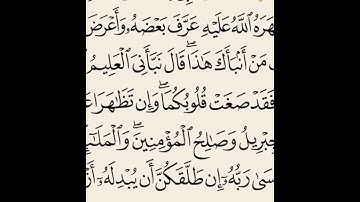 هَرَهُ ٱللَّهُ عَلَيْهِ عَرَّفَ بَعْضَهُۥ وَأَعْرَضَ
مَنْ أَنۢبَأَكَ هَٰذَا ۖ قَالَ نَبَّأَنِىَ ٱلْعَلِيمُ
فَقَدْ صَغَتْ قُلُوبُكُمَا ۖ وَإِن تَظَٰهَرَا عَ
جِبْرِيلُ وَصَٰلِحُ ٱلْمُؤْمِنِينَ ۖ وَٱلْمَلَٰٓئِ
سَىٰ رَبُّهُۥٓ إِن طَلَّقَكُنَّ أَن يُبْدِلَهُۥٓ أَزْ